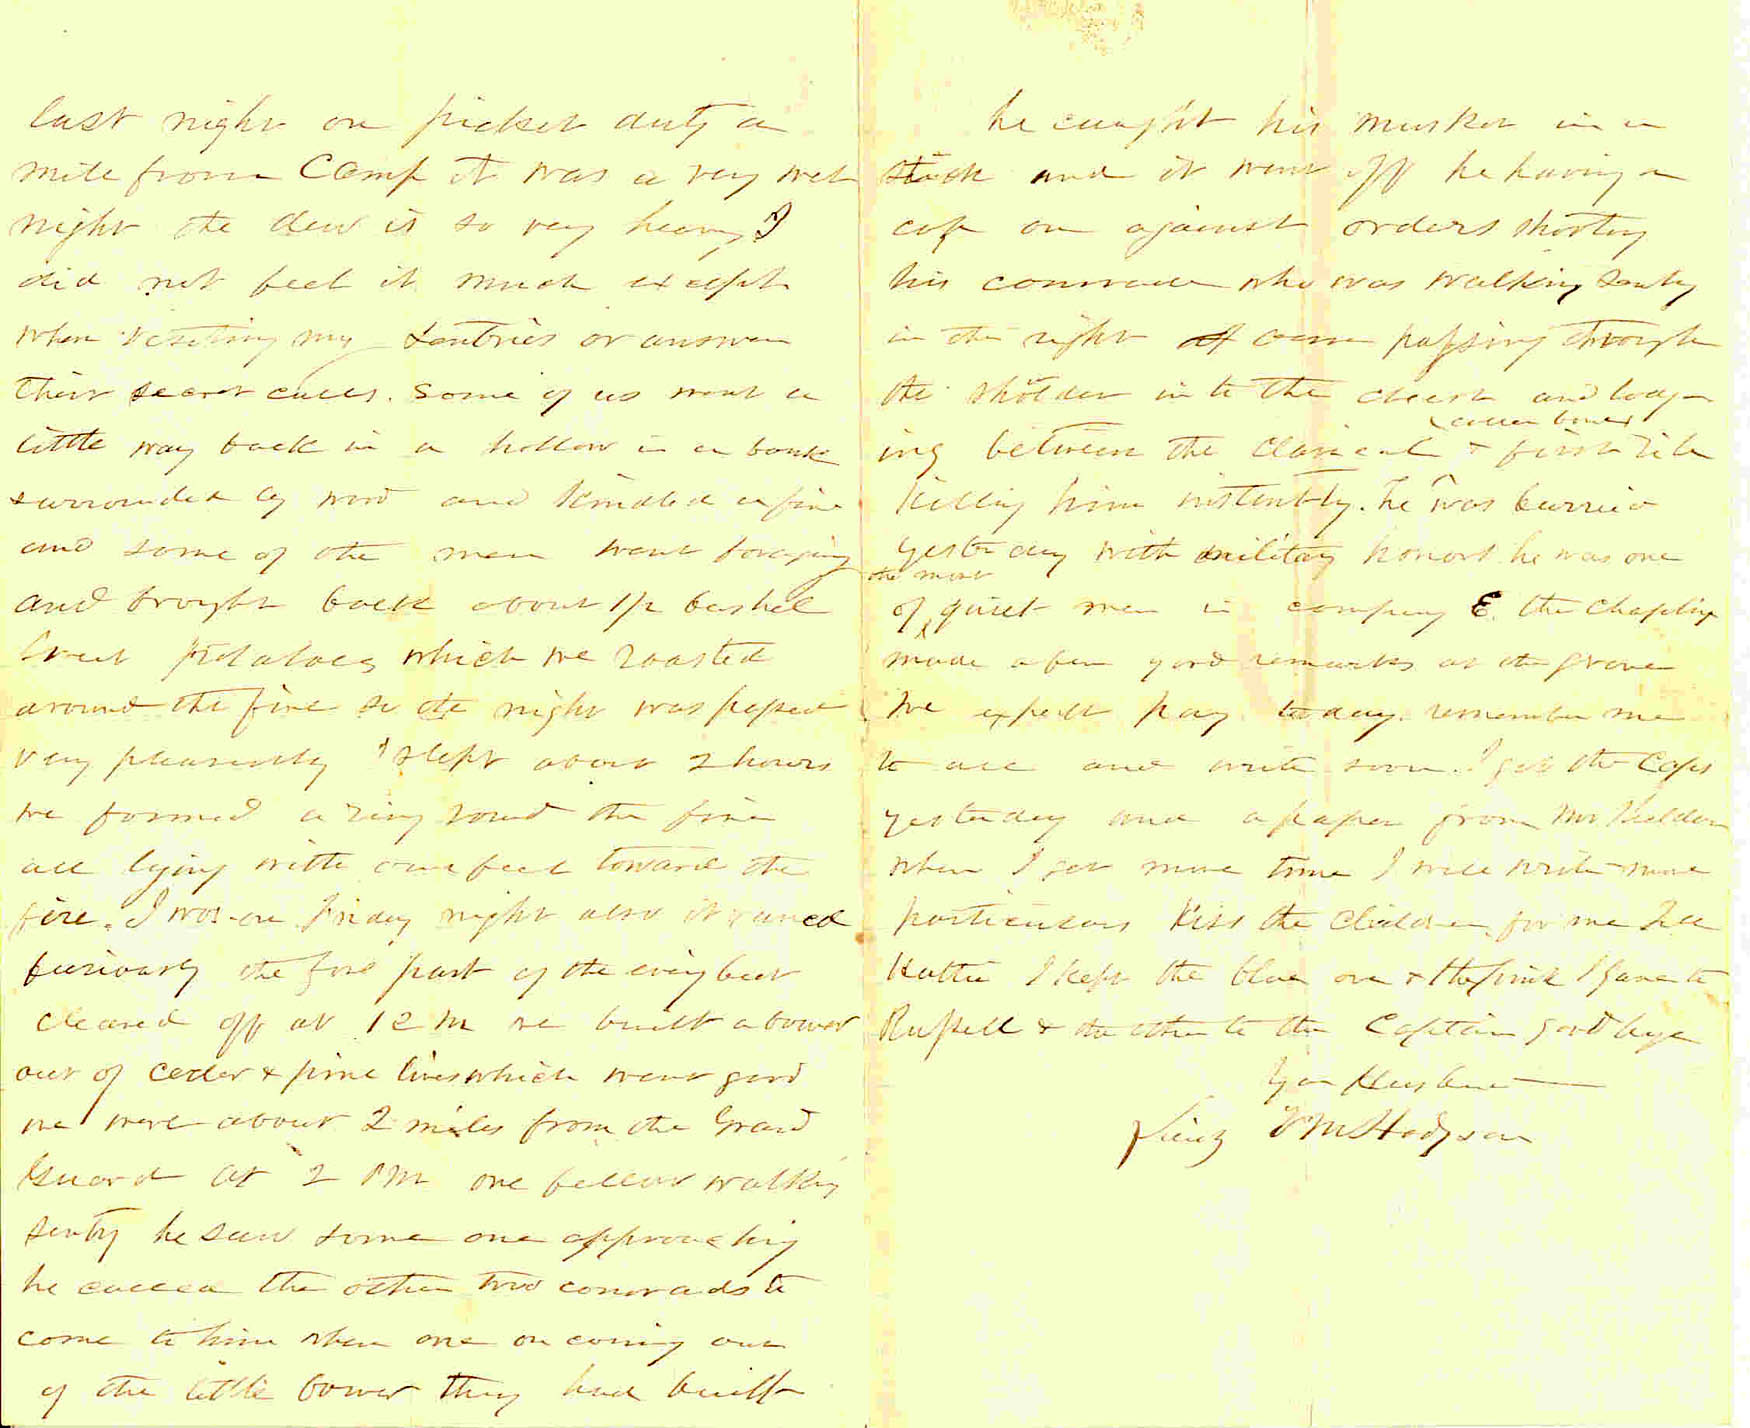 last night on picket duty a
mile from Camp it was a very wet
night the dew is so very heavy I
did not feel it much except
when visiting my Sentries or answer
their secret calls. Some of us went a
little way back in a hollow in a bank
surrounded by wood and kindled a fire
and some of the men went foraging
and brought back about 1/2 bushel
Sweet potatoes which we roasted
around the fire so the night was passed
very pleasently I slept about 2 hours
we formed a ring round the fire
all lying with our feet toward the
fire. I was on Friday night also it rained
furiously the fore part of the evig but
cleared off at 12 M we built a bower
out of ceder & pine which went good
we were about 2 miles from the Grand
Guard at 2 PM one fellow walking
sentry he saw some one approaching
he called the other two comrads to
come to him when one on coming out
of the little bower they had built
he caught his musket in a
stick and it went off he having a
cap on against orders shooting
his comrade who was walking Sentry
in the right arm passing through
the sholder in to the chest and lodg-
(coller bone)
ing between the clavical & first rib
killing him instently. he was burried
yesterday with military honors he was one
the most
of quiet men in company E. the chaplin
made a few good remarks at the grave
We expect pay to day. remember me
to all and write soon. I got the Caps
yesterday and a paper from Mr
when I get more time I will write more
particulars Kiss the children for me Tell
Hattie I kept the blue one & the pink I gave to
Russell & the other to the Captain good bye
Your Husband
Lieut Hodgson